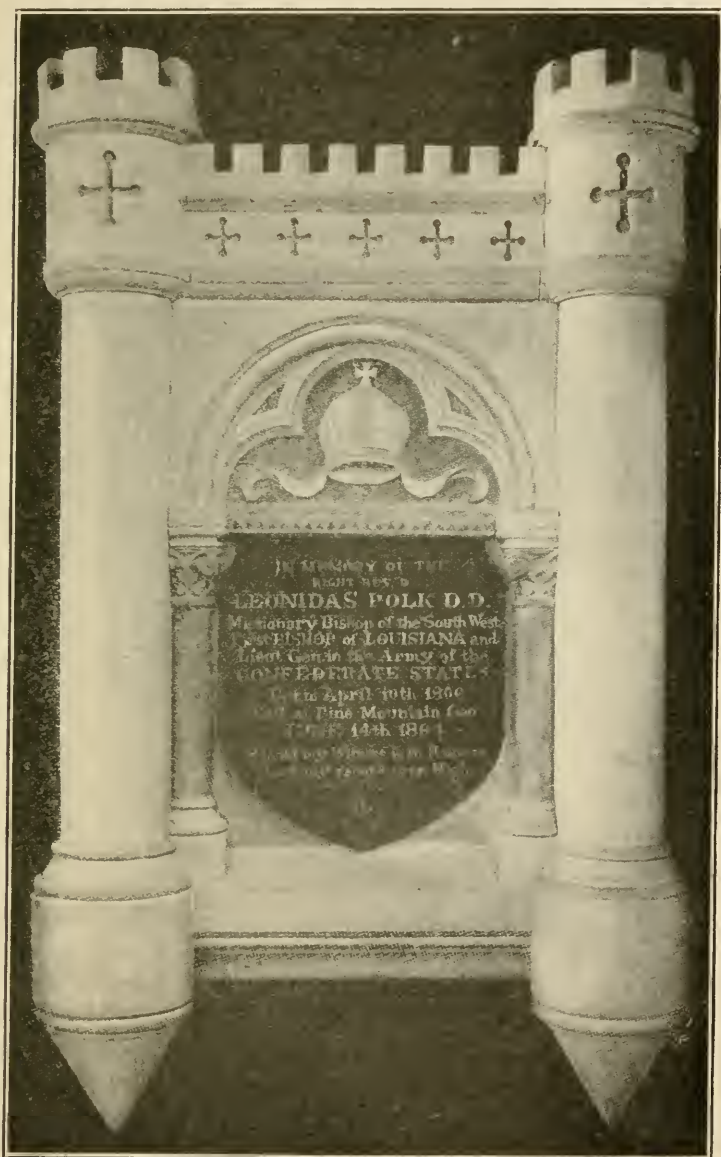 IN MEMORY OF THE
RIGHT REV'D
LEONIDAS POLK D.D.
Missionary Bishop of the South West
First BISHOP of LOUISIANA and
Lieut Gen in the Army of the
CONFEDERATE STATES
Born April 10th 1806
Fell at Pine Mountain Geo
JUNE 14th 1864